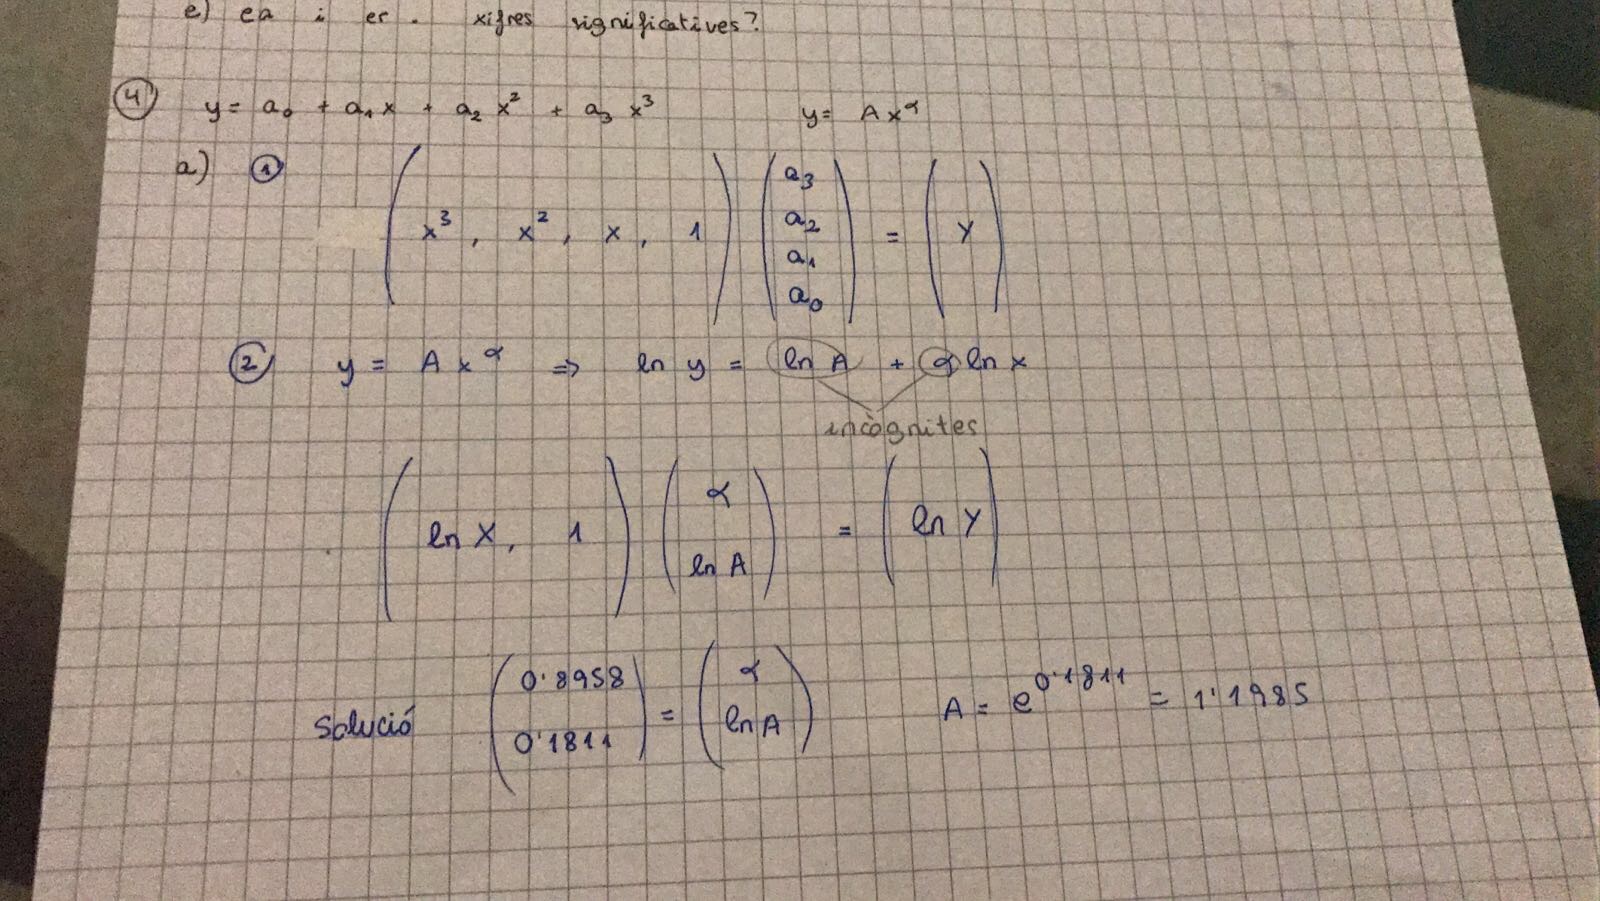 e) ea i er . xifres significatives?
4 y = a₀ + a₁x + a₂x² + a₃x³ y = Ax^α
a) 1 (x³, x², x, 1) (a₃ a₂ a₁ a₀) = (Y)
2 y = Ax^α ⇒ ln y = ln A + α ln x
incògnites
(ln X, 1) (α ln A) = (ln Y)
Solució (0'8958 0'1811) = (α ln A) A = e^0'1811 = 1'1985